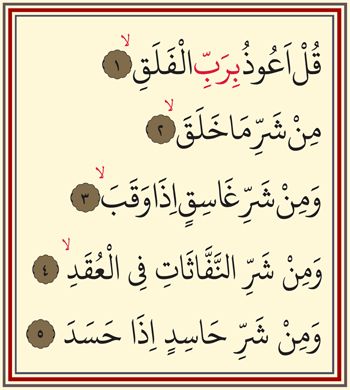 قُلْ اَعُوذُ بِرَبِّ الْفَلَقِۙ ١
مِنْ شَرِّ مَا خَلَقَۙ ٢
وَمِنْ شَرِّ غَاسِقٍ اِذَا وَقَبَۙ ٣
وَمِنْ شَرِّ النَّفَّاثَاتِ فِى الْعُقَدِۙ ٤
وَمِنْ شَرِّ حَاسِدٍ اِذَا حَسَدَ ٥